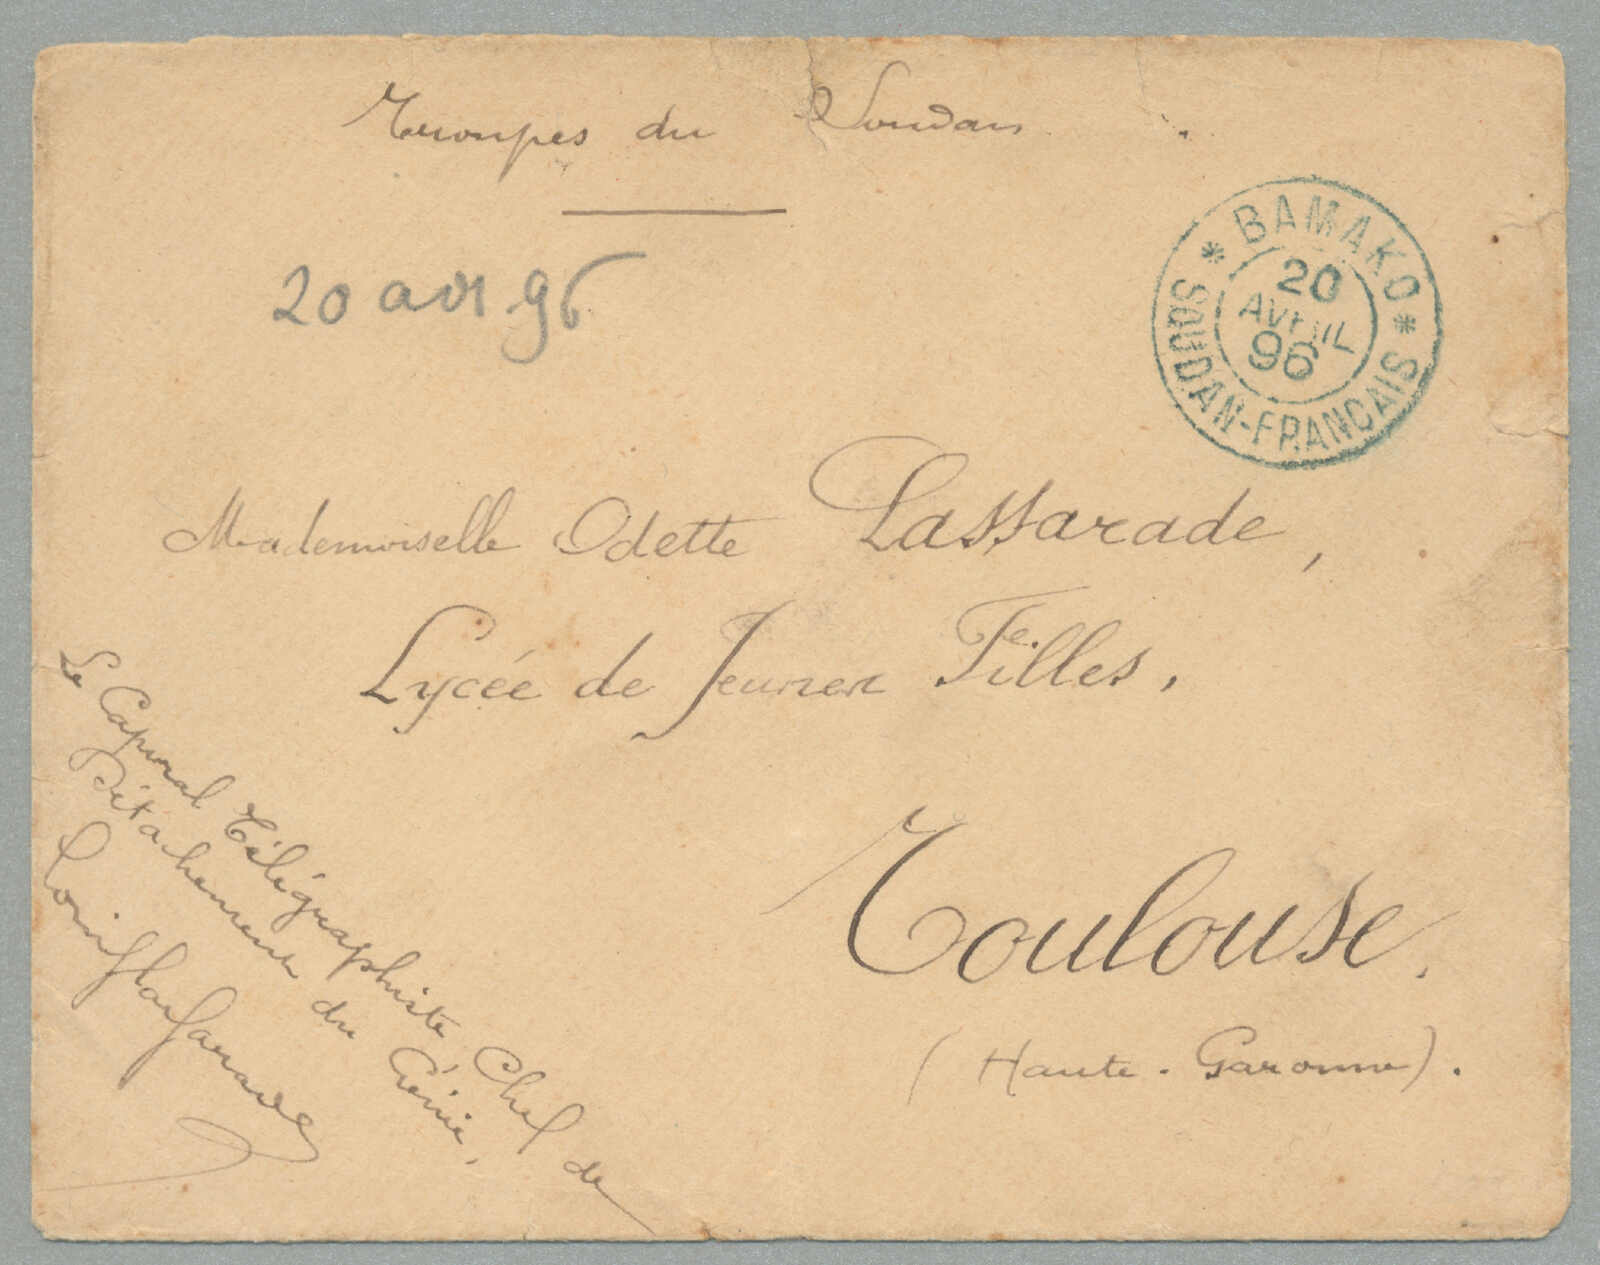 Troupes du Soudan
BAMAKO
20
AVRIL
96
SOUDAN-FRANCAIS
20 avr 96
Mademoiselle Odette Lassarade,
Lycée de Jeunes Filles,
Toulouse.
(Haute-Garonne).
Le Caporal Télégraphiste Chef de
Détachement du Génie,